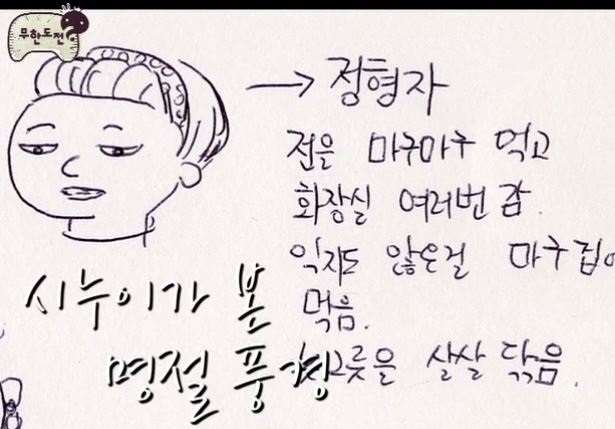 무한도전
→ 정형자
전을 마구마구 먹고
화장실 여러번 감.
익지도 않은걸 마구 집어
먹음.
그릇을 살살 닦음.
시누이가 본
명절 풍경